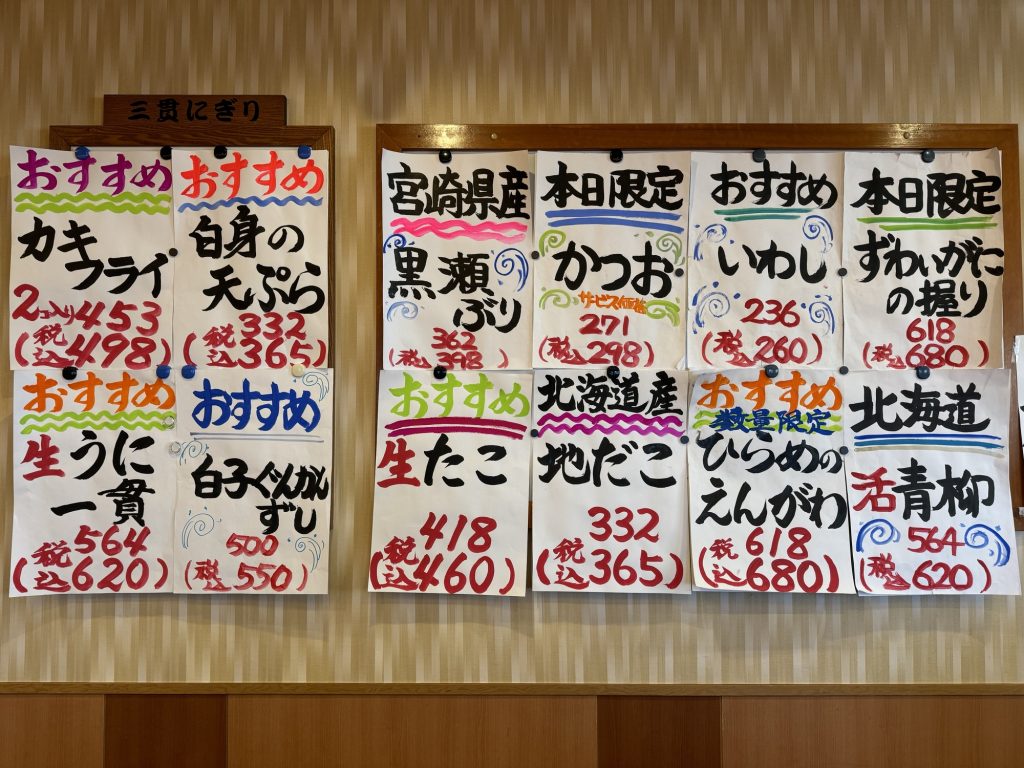 三貫にぎり
おすすめ
カキ
フライ
2コ入り453
(税込498)
おすすめ
白身の
天ぷら
332
(税込365)
おすすめ
生うに
一貫
564
(税込620)
おすすめ
白子ぐんかん
ずし
500
(税込550)
宮崎県産
黒瀬
ぶり
362
(税込398)
本日限定
かつお
サービス価格
271
(税込298)
おすすめ
いわし
236
(税込260)
本日限定
ずわいがに
の握り
618
(税込680)
おすすめ
生たこ
418
(税込460)
北海道産
地だこ
332
(税込365)
おすすめ
数量限定
ひらめの
えんがわ
618
(税込680)
北海道
活青柳
564
(税込620)